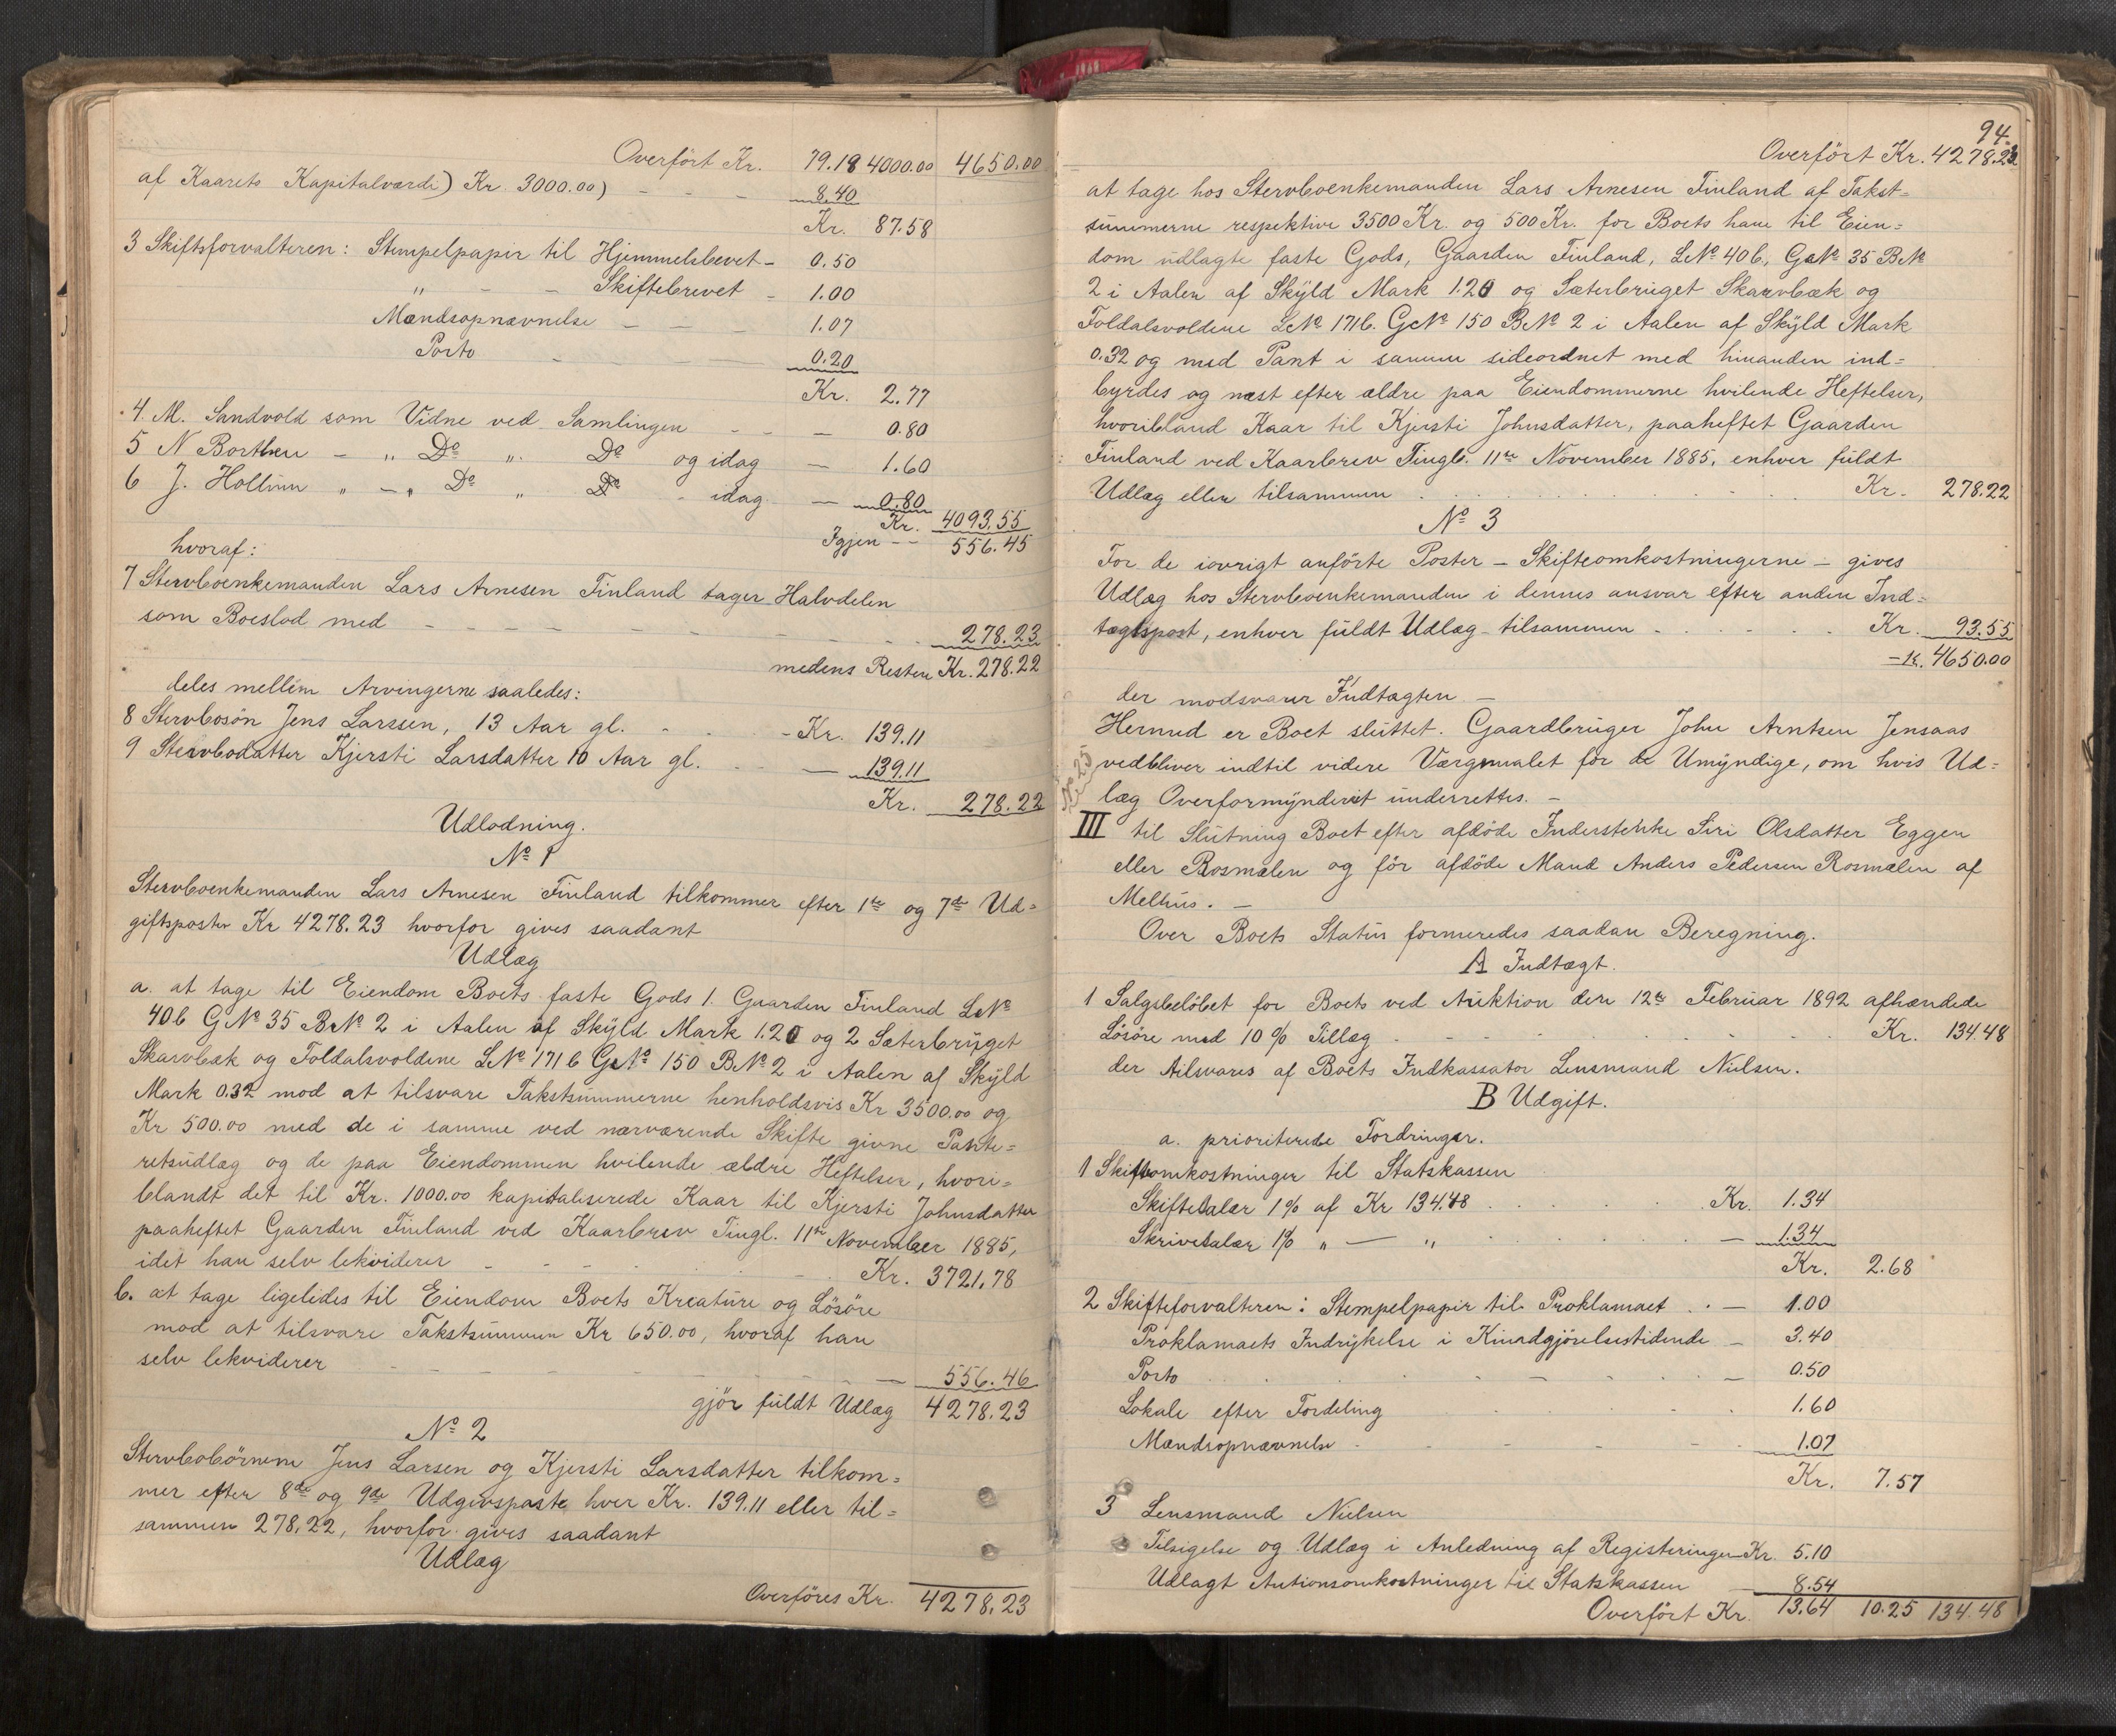 Overført Kr. 79.18 4000.00 4650.00
af Kaarets Kapitalværdi) Kr. 3000.00) - - 8.40
Kr. 87.58
3 Skiftsforvalteren: Stempelpapir til Hjemmelsbevet - 0.50
" - - Skiftebrevet - 1.00
Mandsopnævnelse - - - 1.07
Porto - - 0.20
Kr. 2.77
4 M. Sandvold som Vidne ved Samlingen - - - 0.80
5 N Borthen - " Do " Do og idag - 1.60
6 J. Hollim " - " Do " Do - idag - 0.80
Kr. 4093.55
Igjen - - 556.45
hvoraf:
7 Stervboenkemanden Lars Arnesen Finland tager Halvdelen
som Boeslod med - - - - - - 278.23
medens Resten Kr. 278.22
deles mellem Arvingerne saaledes:
8 Stervbosøn Jens Larssen, 13 Aar gl. - - Kr. 139.11
9 Stervbodatter Kjersti Larsdatter 10 Aar gl. - 139.11
Kr. 278.22
Udlodning.
No 1
Stervboenkemanden Lars Arnesen Finland tilkommer efter 1ste og 7de Ud=
giftsposter Kr 4278.23 hvorfor gives saadant
Udlæg
a. at tage til Eiendom Boets faste Gods 1. Gaarden Finland LNo
40b GNo 35 BNo 2 i Aalen af Skyld Mark 1.20 og 2 Sæterbruget
Skarvbæk og Foldalsvoldene LNo 171b GNo 150 BNo 2 i Aalen af Skyld
Mark 0.32 mod at tilsvare Takstsummerne henholdsvis Kr 3500.00 og
Kr 500.00 med de i samme ved nærværende Skifte givne Pante=
retsudlæg og de paa Eiendommen hvilende ældre Heftelser, hvori=
blandt det til Kr. 1000.00 kapitaliserede Kaar til Kjersti Johnsdatter
paaheftet Gaarden Finland ved Kaarbrev Tingl. 11te November 1885,
idet han selv lekviderer - - - - Kr. 3721.78
b. at tage ligeledes til Eiendom Boets Kreature og Løsøre
mod at tilsvare Takstsummen Kr 650.00, hvoraf han
selv lekviderer - - - - - 556.46
gjør fuldt Udlæg 4278.23
No 2
Stervbobørnene Jens Larsen og Kjersti Larsdatter tilkom=
mer efter 8de og 9de Udgivsposte hver Kr. 139.11 eller til=
sammen 278.22, hvorfor gives saadant
Udlæg
Overføres Kr. 4278.23
94.
Overført Kr. 4278.23
at tage hos Stervboenkemanden Lars Arnesen Finland af Takst=
summerne respektive 3500 Kr. og 500 Kr. for Boets ham til Eien=
dom udlagte faste Gods, Gaarden Finland, LNo 40b, GNo 35 BNo
2 i Aalen af Skyld Mark 1.20 og Sæterbruget Skarvbæk og
Foldalsvoldene LNo 171b. GNo 150 BNo 2 i Aalen af Skyld Mark
0.32 og med Pant i samme sideordnet med hinanden ind=
byrdes og næst efter ældre paa Eiendommerne hvilende Heftelser,
hvoribland Kaar til Kjersti Johnsdatter, paaheftet Gaarden
Finland ved Kaarbrev Tingl. 11te November 1885, enhver fuldt
Udlæg eller tilsammen . . . . Kr. 278.22
No 3
For de iøvrigt anførte Poster - Skifteomkostningerne - gives
Udlæg hos Stervboenkemanden i dennes ansvar efter anden Ind=
tægtspost, enhver fuldt Udlæg tilsammen . . . Kr. 93.55
- K. 4650.00
der modsvarer Indtægten -
Hermed er Boet sluttet. Gaardbruger John Arntsen Jensaas
vedbliver indtil videre Værgemalet for de Umyndige, om hvis Ud=
læg Overformynderiet underrettes. -
III til Slutning Boet efter afdøde Inderstenke Siri Olsdatter Eggen
eller Rosmælen og før afdøde Mand Anders Pedersen Rosmælen af
Melhus. -
Over Boets Status formeredes saadan Beregning.
A Indtægt.
1 Salgsbeløbet for Boets ved Auktion den 12te Februar 1892 afhændede
Løsøre med 10 % Tillæg . . . . Kr. 134.48
der tilsvares af Boets Indkassator Lensmand Nielsen.
B Udgift.
a. prioriterede Fordringer.
1 Skifteomkostninger til Statskassen
Skiftesalær 1 % af Kr 134.48 . . . Kr. 1.34
Skrivesalær 1% " - " . . . - 1.34
Kr. 2.68
2 Skifteforvalteren: Stempelpapir til Proklamaet . . - 1.00
Proklamaets Indrykelse i Kundgjørelsestidende - 3.40
Porto . . . - 0.50
Lokale efter Fordeling . . . 1.60
Mændsopnævnelse . . . 1.07
Kr. 7.57
3 Lensmand Nielsen
Tilsigelse og Udlæg i Anledning af Registeringen Kr. 5.10
Udlagt Autionsomkostninger til Statskassen 8.54
Overført Kr. 13.64 10.25 134.48